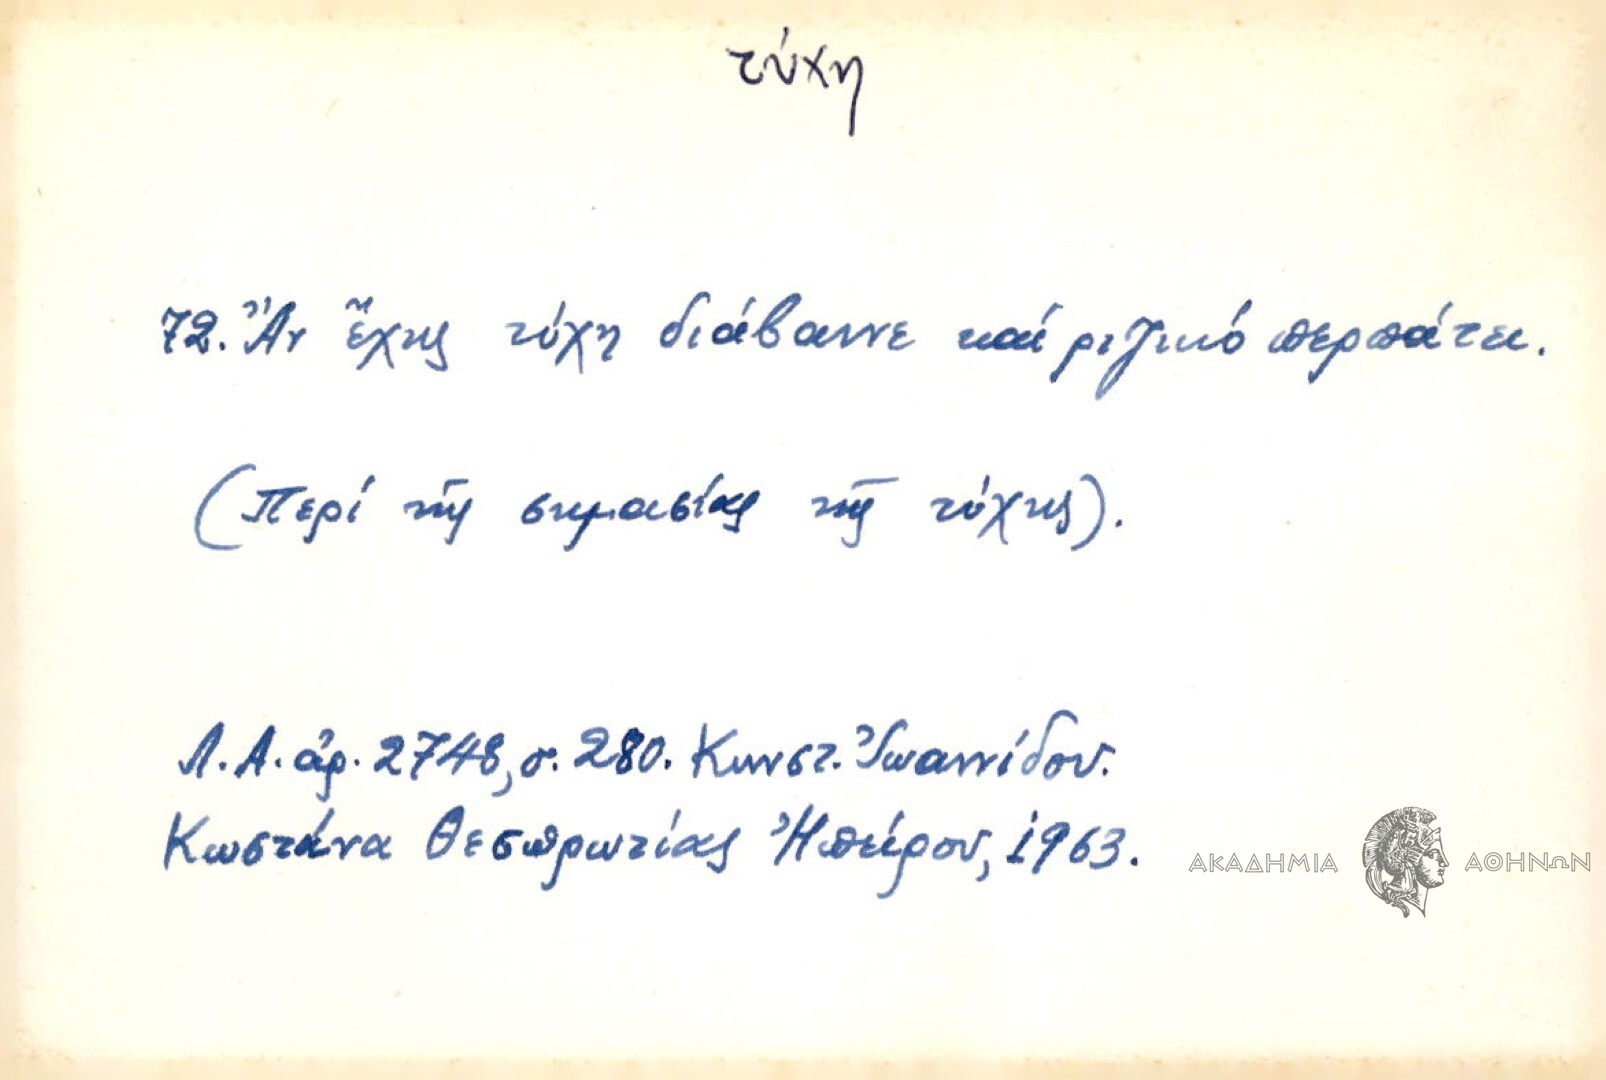 τύχη
72. Ἄν ἔχῃς τύχη διάβαινε καί ριζικό περπάτει.
(Περί τῆς σημασίας τῆς τύχης).
Λ.Α. ἀρ. 2748, σ. 280. Κωνστ. Ἰωαννίδου.
Κωστάνα Θεσπρωτίας Ἠπείρου, 1963.
ΑΚΑΔΗΜΙΑ ΑΘΗΝΩΝ